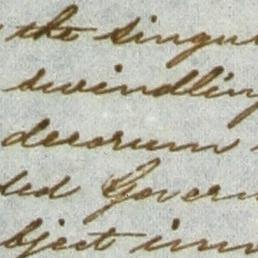 the singu
swindling
decorum
ded Govern
bject inv